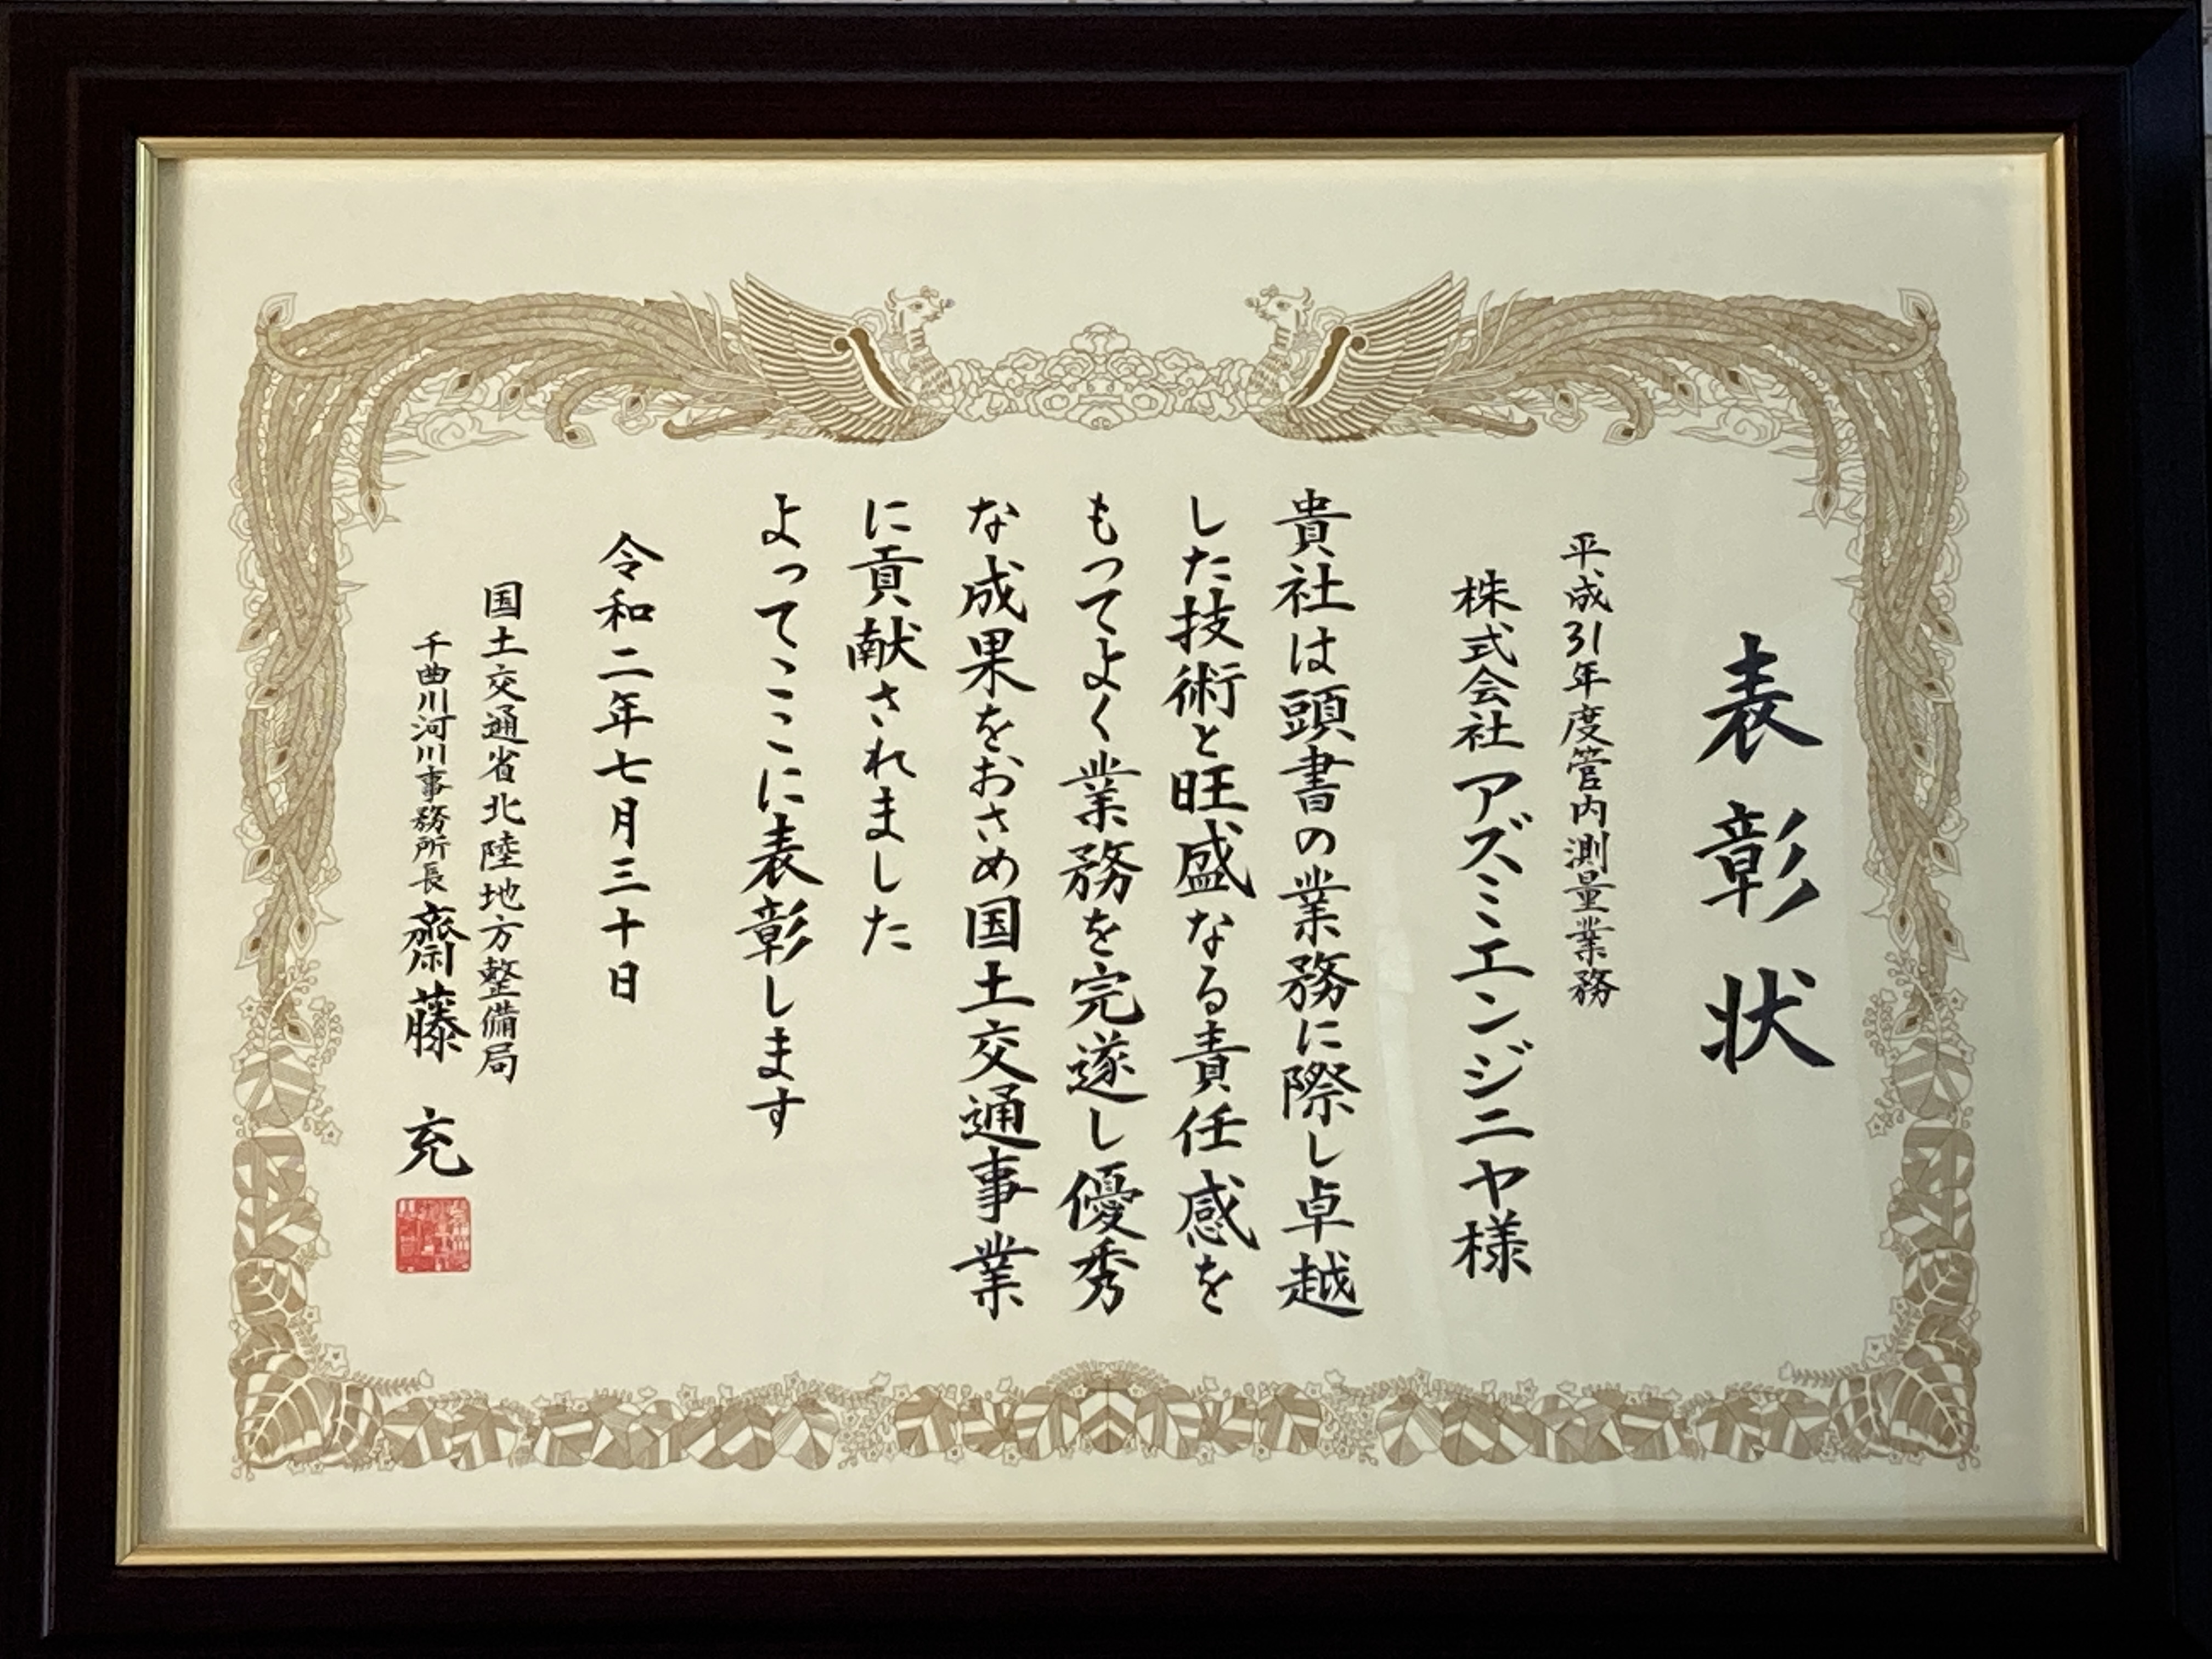 表彰状
平成31年度管内測量業務
株式会社アズミエンジニヤ様
貴社は頭書の業務に際し卓越
した技術と旺盛なる責任感を
もってよく業務を完遂し優秀
な成果をおさめ国土交通事業
に貢献されました
よってここに表彰します
令和二年七月三十日
国土交通省北陸地方整備局
千曲川河川事務所長 齋藤 充